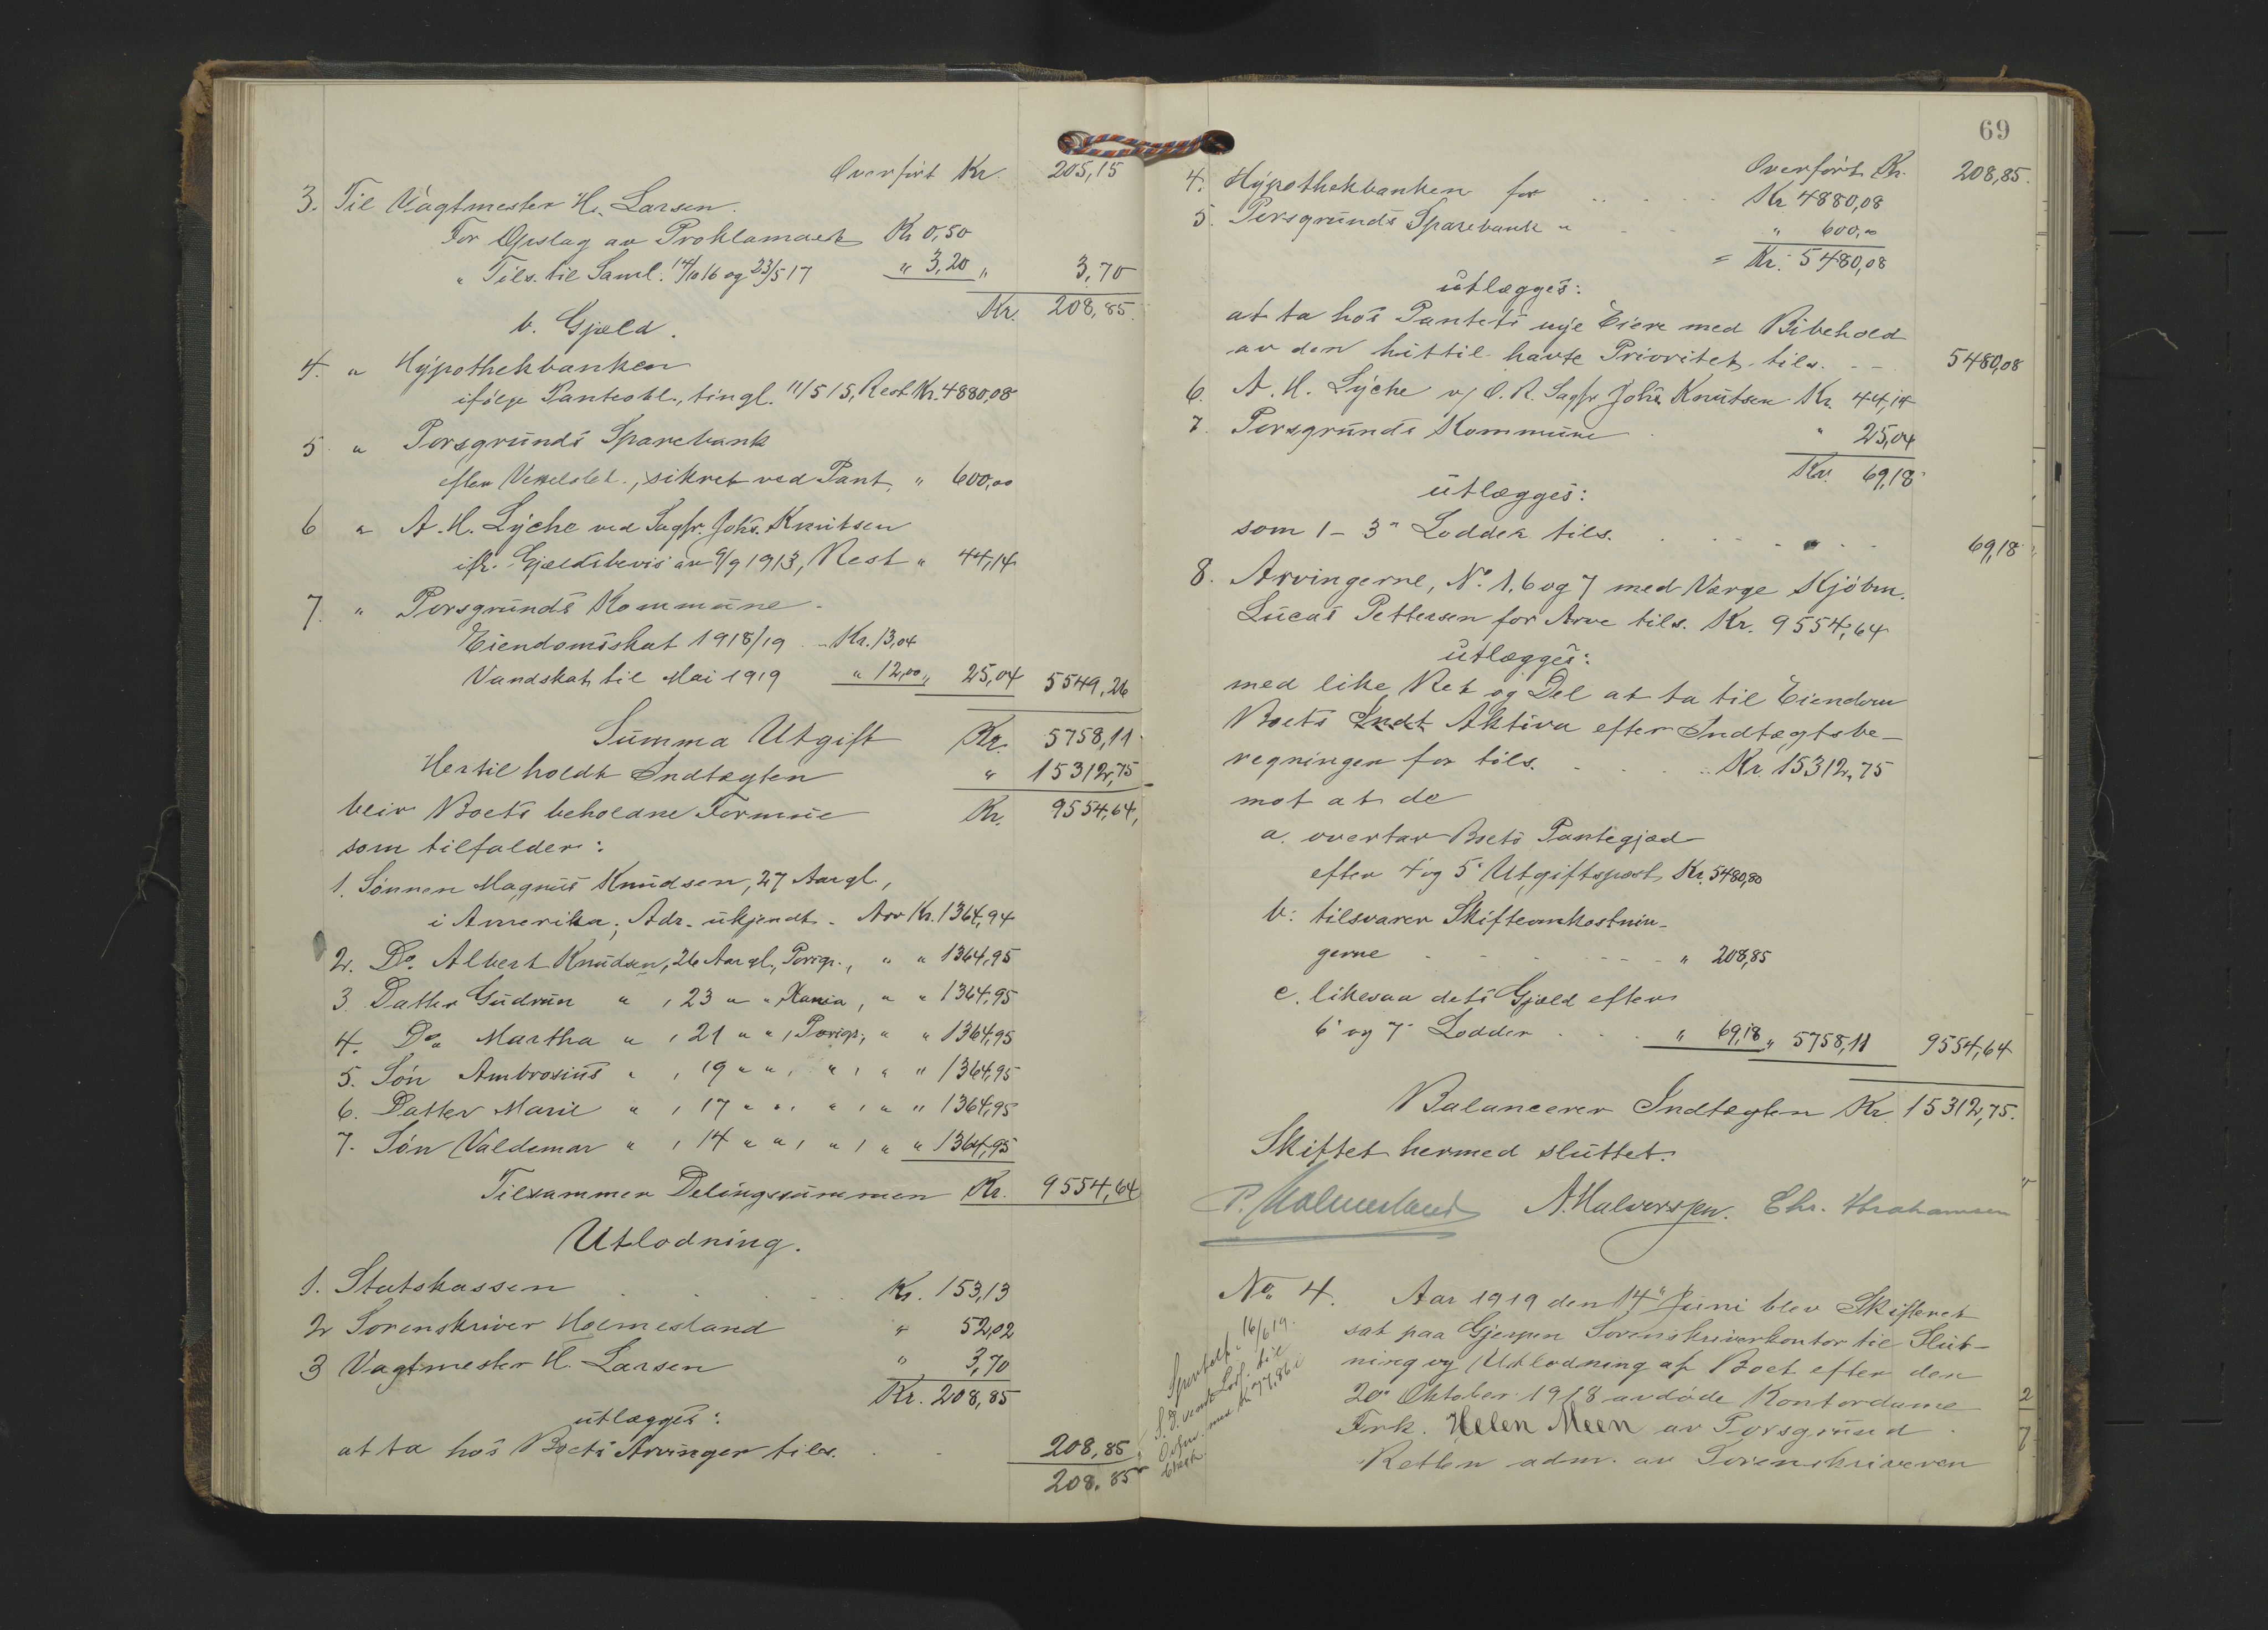 Overført Kr. 205,15
3. Til Vagtmester H. Larsen.
For Opslag av Proklamaet Kr 0,50
" Tils. til Saml. 14/10 16 og 23/5 17 " 3,20 " 3,70
Kr. 208,85
b. Gjæld.
4. " Hypothekbanken
ifølge Panteobl., tingl. 11/5 15, Rest Kr. 4880,08
5 " Porsgrunds Sparebank
efter Vexelobl., sikret ved Pant, " 600,00
6 " A. H. Lyche ved Sagfr. Johs. Knutsen
ifl. Gjældsbevis av 9/9 1913, Rest " 44,14
7. " Porsgrunds Kommune.
Eiendomsskat 1918/19 Kr. 13,04
Vandskat til Mai 1919 " 12,00 " 25,04 5549,26
Summa Utgift Kr. 5758,11
Hertil holdt Indtægten " 15312,75
blir Boets beholdne Formue Kr. 9554,64,
som tilfalder:
1. Sønnen Magnus Knudsen, 27 Aar gl.,
i Amerika, Adr. ukjendt. Arv Kr. 1364,94
2. Do. Albert Knudsen, 26 Aar gl., Porsgr., " " 1364,95
3. Datter Gudrun " , 23 " " Xania, " " 1364,95
4. Do. Martha " , 21 " " , Porsgr., " " 1364,95
5. Søn Ambrosius " , 19 " " , " , " " 1364,95
6. Datter Marie " , 17 " " , " , " " 1364,95
7. Søn Valdemar " , 14 " " , " , " " 1364,95
Tilsammen Delingssummen Kr. 9554,64
Utlodning.
1. Statskassen Kr. 153,13
2 Sorenskriver Holmesland " 52,02
3 Vagtmester H. Larsen " 3,70
Kr. 208,85
utlægges:
at ta hos Boets Arvinger tils. 208,85
208.85
69
Overført Kr. 208,85.
4. Hypothekbanken for Kr 4880,08
5. Porsgrunds Sparebank " " 600,00
= Kr. 5480,08
utlægges:
at ta hos Pantets nye Eiere med Bibehold
av den hittil havte Prioritet tils. 5480,08
6. A. H. Lyche v/ O. R. Sagfr Johs Knutsen Kr. 44,14
7. Porsgrunds Kommune " 25,04
Kr. 69,18
utlægges:
som 1 - 3" Lodder tils. 69,18
8. Arvingerne, No. 1, 6 og 7 med Værge Kjøbm.
Lucas Pettersen for Arve tils. Kr. 9554,64
utlægges:
med like Ret og Del at ta til Eiendom
Boets Indt Aktiva efter Indtægtsbe-
regningen for tils. Kr. 15312,75
mot at de
a. overtar Boets Pantegjæd
efter 4' og 5' Utgiftspost Kr. 5480,80
b. tilsvarer Skifteomkostnin-
gerne " 208,85
c. likesaa dets Gjæld efter
6' og 7' Lodder " 69,18 " 5758,11 9554,64
Balancerer Indtægten Kr. 15312,75.
Skiftet hermed sluttet.
P. Holmesland A. Halvorsen. Chr. Abrahamsen
No. 4. Aar 1919 den 14" Juni blev Skifteret
sat paa Gjerpen Sorenskriverkontor til Slut-
ning og Utlodning af Boet efter den
20" Oktober 1918 avdøde Kontordame
Frk. Helen Meen av Porsgrund.
Retten adm. av Sorenskriveren
16/6 19.